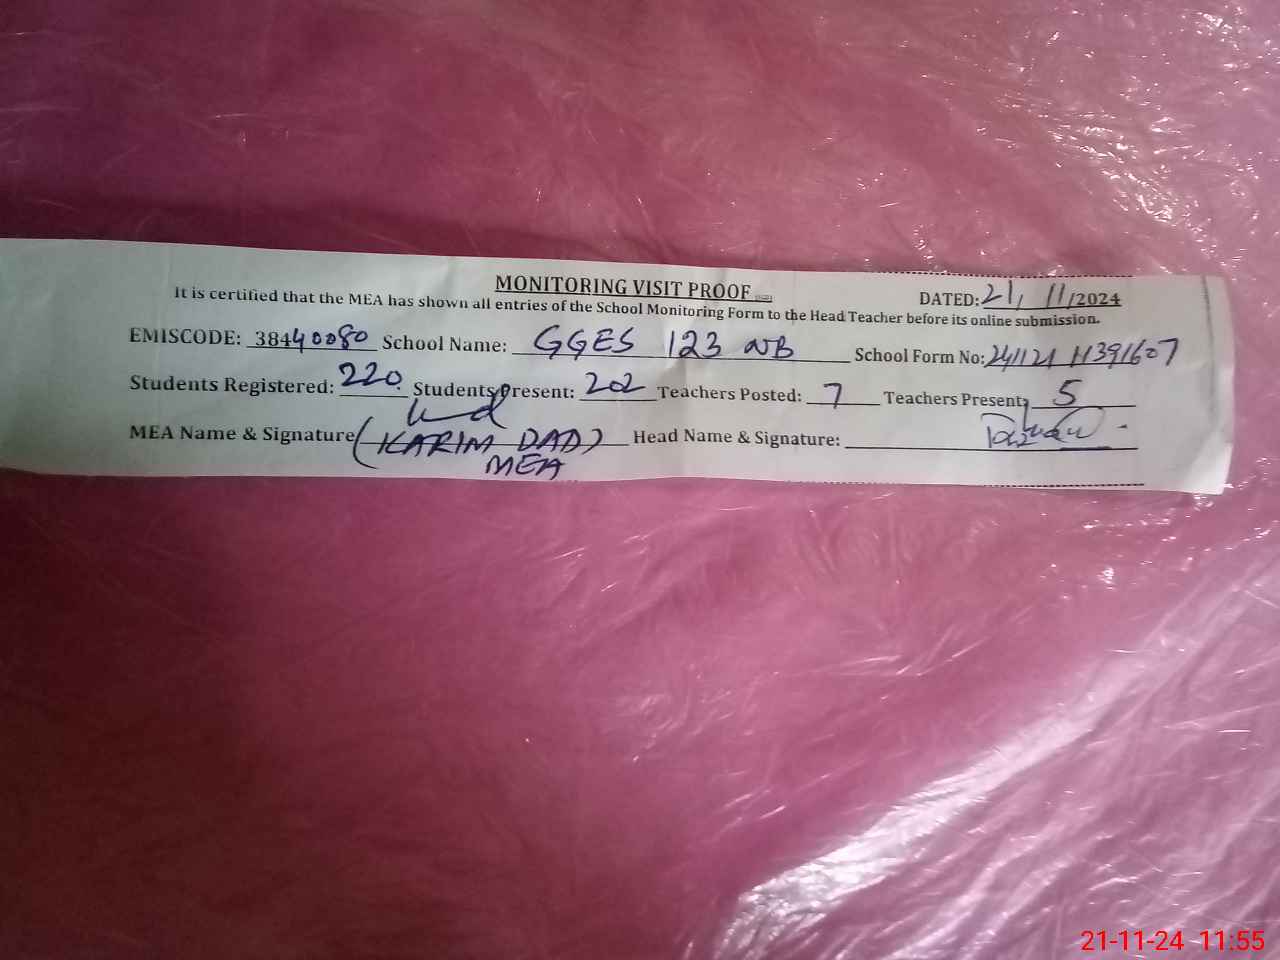 MONITORING VISIT PROOF
DATED: 21, 11/2024
It is certified that the MEA has shown all entries of the School Monitoring Form to the Head Teacher before its online submission.
EMISCODE: 38440080 School Name: GGES 123 NB School Form No: 241121 11391607
Students Registered: 220. Students Present: 202 Teachers Posted: 7 Teachers Present: 5
MEA Name & Signature (KARIM DAD) Head Name & Signature:
MEA
21-11-24 11:55